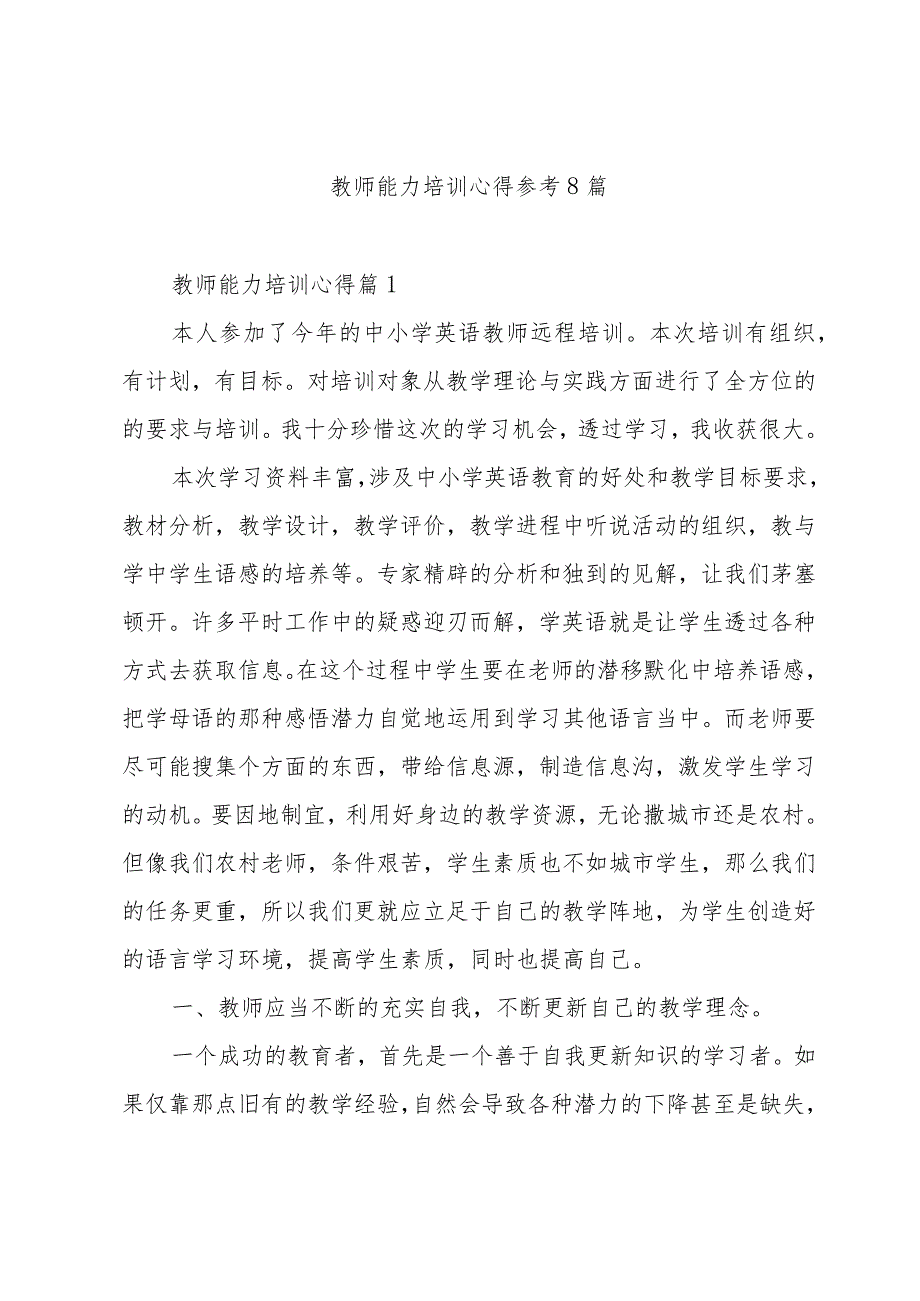 教师能力培训心得参考8篇
教师能力培训心得篇1
本人参加了今年的中小学英语教师远程培训。本次培训有组织，
有计划，有目标。对培训对象从教学理论与实践方面进行了全方位的
的要求与培训。我十分珍惜这次的学习机会，透过学习，我收获很大。
本次学习资料丰富，涉及中小学英语教育的好处和教学目标要求，
教材分析，教学设计，教学评价，教学进程中听说活动的组织，教与
学中学生语感的培养等。专家精辟的分析和独到的见解，让我们茅塞
顿开。许多平时工作中的疑惑迎刃而解，学英语就是让学生透过各种
方式去获取信息。在这个过程中学生要在老师的潜移默化中培养语感，
把学母语的那种感悟潜力自觉地运用到学习其他语言当中。而老师要
尽可能搜集个方面的东西，带给信息源，制造信息沟，激发学生学习
的动机。要因地制宜，利用好身边的教学资源，无论撒城市还是农村。
但像我们农村老师，条件艰苦，学生素质也不如城市学生，那么我们
的任务更重，所以我们更就应立足于自己的教学阵地，为学生创造好
的语言学习环境，提高学生素质，同时也提高自己。
一、教师应当不断的充实自我，不断更新自己的教学理念。
一个成功的教育者，首先是一个善于自我更新知识的学习者。如
果仅靠那点旧有的教学经验，自然会导致各种潜力的下降甚至是缺失，